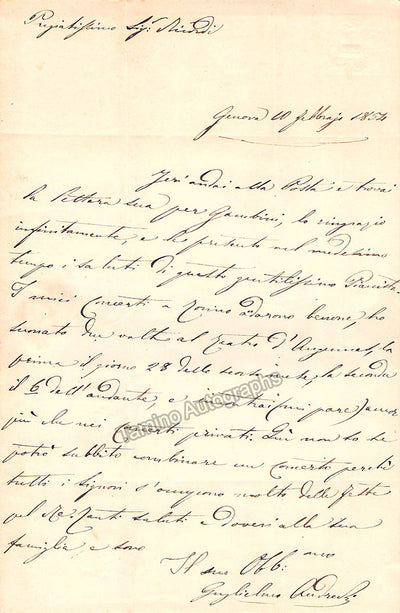 Pregiatissimo Sigr Ricordi
Genova 10 febbrajo 1854
Jeri andai alla Posta e trovai
la lettera sua per Gambini, lo ringrazio
infinitamente, e le presento nel medesimo
tempo i saluti di questo gentilissimo Pianista.
I miei Concerti a Torino andarono benone, ho
suonato due volte al Teatro d'Angennes, la
prima il giorno 28 dello scorso mese, la seconda
il 6 dell'andante e (mi pare)
più che nei concerti privati. Qui non so se
potrò subbito combinare un Concerto perché
tutti i signori s'occupano molto delle feste
pel Re. Tanti saluti e doveri alla sua
famiglia, e sono
Il suo Obb:mo
Guglielmo
Tamino Autographs